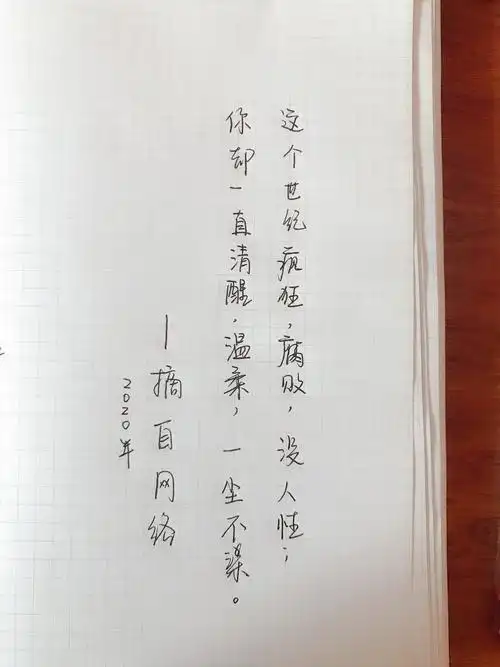 这个世纪疯狂，腐败，没人性；
你却一直清醒，温柔，一尘不染。
—摘自网络
2020年